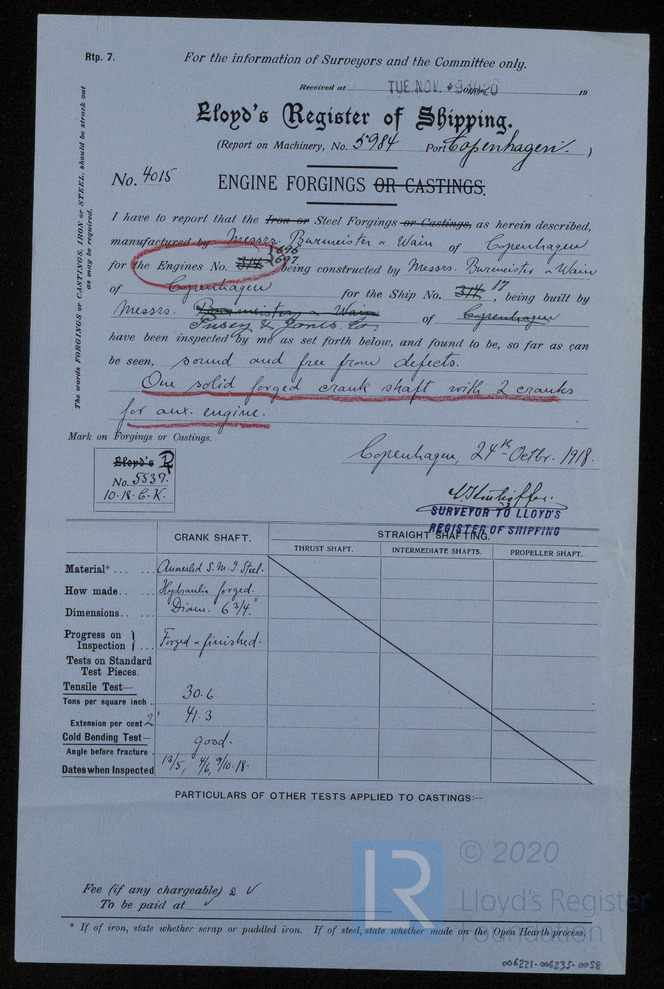 Rtp. 7.
For the information of Surveyors and the Committee only.
Received at TUE. NOV. 9 1920 19
Lloyd's Register of Shipping.
(Report on Machinery, No. 5984 Port Copenhagen. )
No. 4015
ENGINE FORGINGS OR CASTINGS.
The words FORGINGS or CASTINGS, IRON or STEEL, should be struck out
as may be required.
I have to report that the Iron or Steel Forgings or Castings, as herein described,
manufactured by Messrs. Burmeister & Wain of Copenhagen
696
for the Engines No. 314 697 being constructed by Messrs. Burmeister & Wain
of Copenhagen for the Ship No. 314 17, being built by
Messrs. Burmeister & Wain of Copenhagen
Pusey & Jones Co.
have been inspected by me as set forth below, and found to be, so far as can
be seen, sound and free from defects.
One solid forged crank shaft with 2 cranks
for aux. engine.
Mark on Forgings or Castings.
Copenhagen, 24th Octbr. 1918.
Lloyd's
No. 5537.
10.18. C.K.
SURVEYOR TO LLOYD'S
REGISTER OF SHIPPING
CRANK SHAFT. STRAIGHT SHAFTING.
THRUST SHAFT. INTERMEDIATE SHAFTS. PROPELLER SHAFT.
Material* . . . . . . Annealed S. M. I. Steel.
How made . . . . . Hydraulic forged.
Dimensions . . . . . Diam. 6 3/4"
Progress on Inspection } . . . Forged & finished.
Tests on Standard
Test Pieces.
Tensile Test—
Tons per square inch . . 30.6
Extension per cent 2" 41.3
Cold Bending Test— good.
Angle before fracture .
Dates when Inspected 13/5, 4/6, 9/10-18.
PARTICULARS OF OTHER TESTS APPLIED TO CASTINGS:—
Fee (if any chargeable) £ ✓
To be paid at ✓
* If of iron, state whether scrap or puddled iron. If of steel, state whether made on the Open Hearth process.
LR © 2020
Lloyd's Register
Foundation
006221-006235-0058